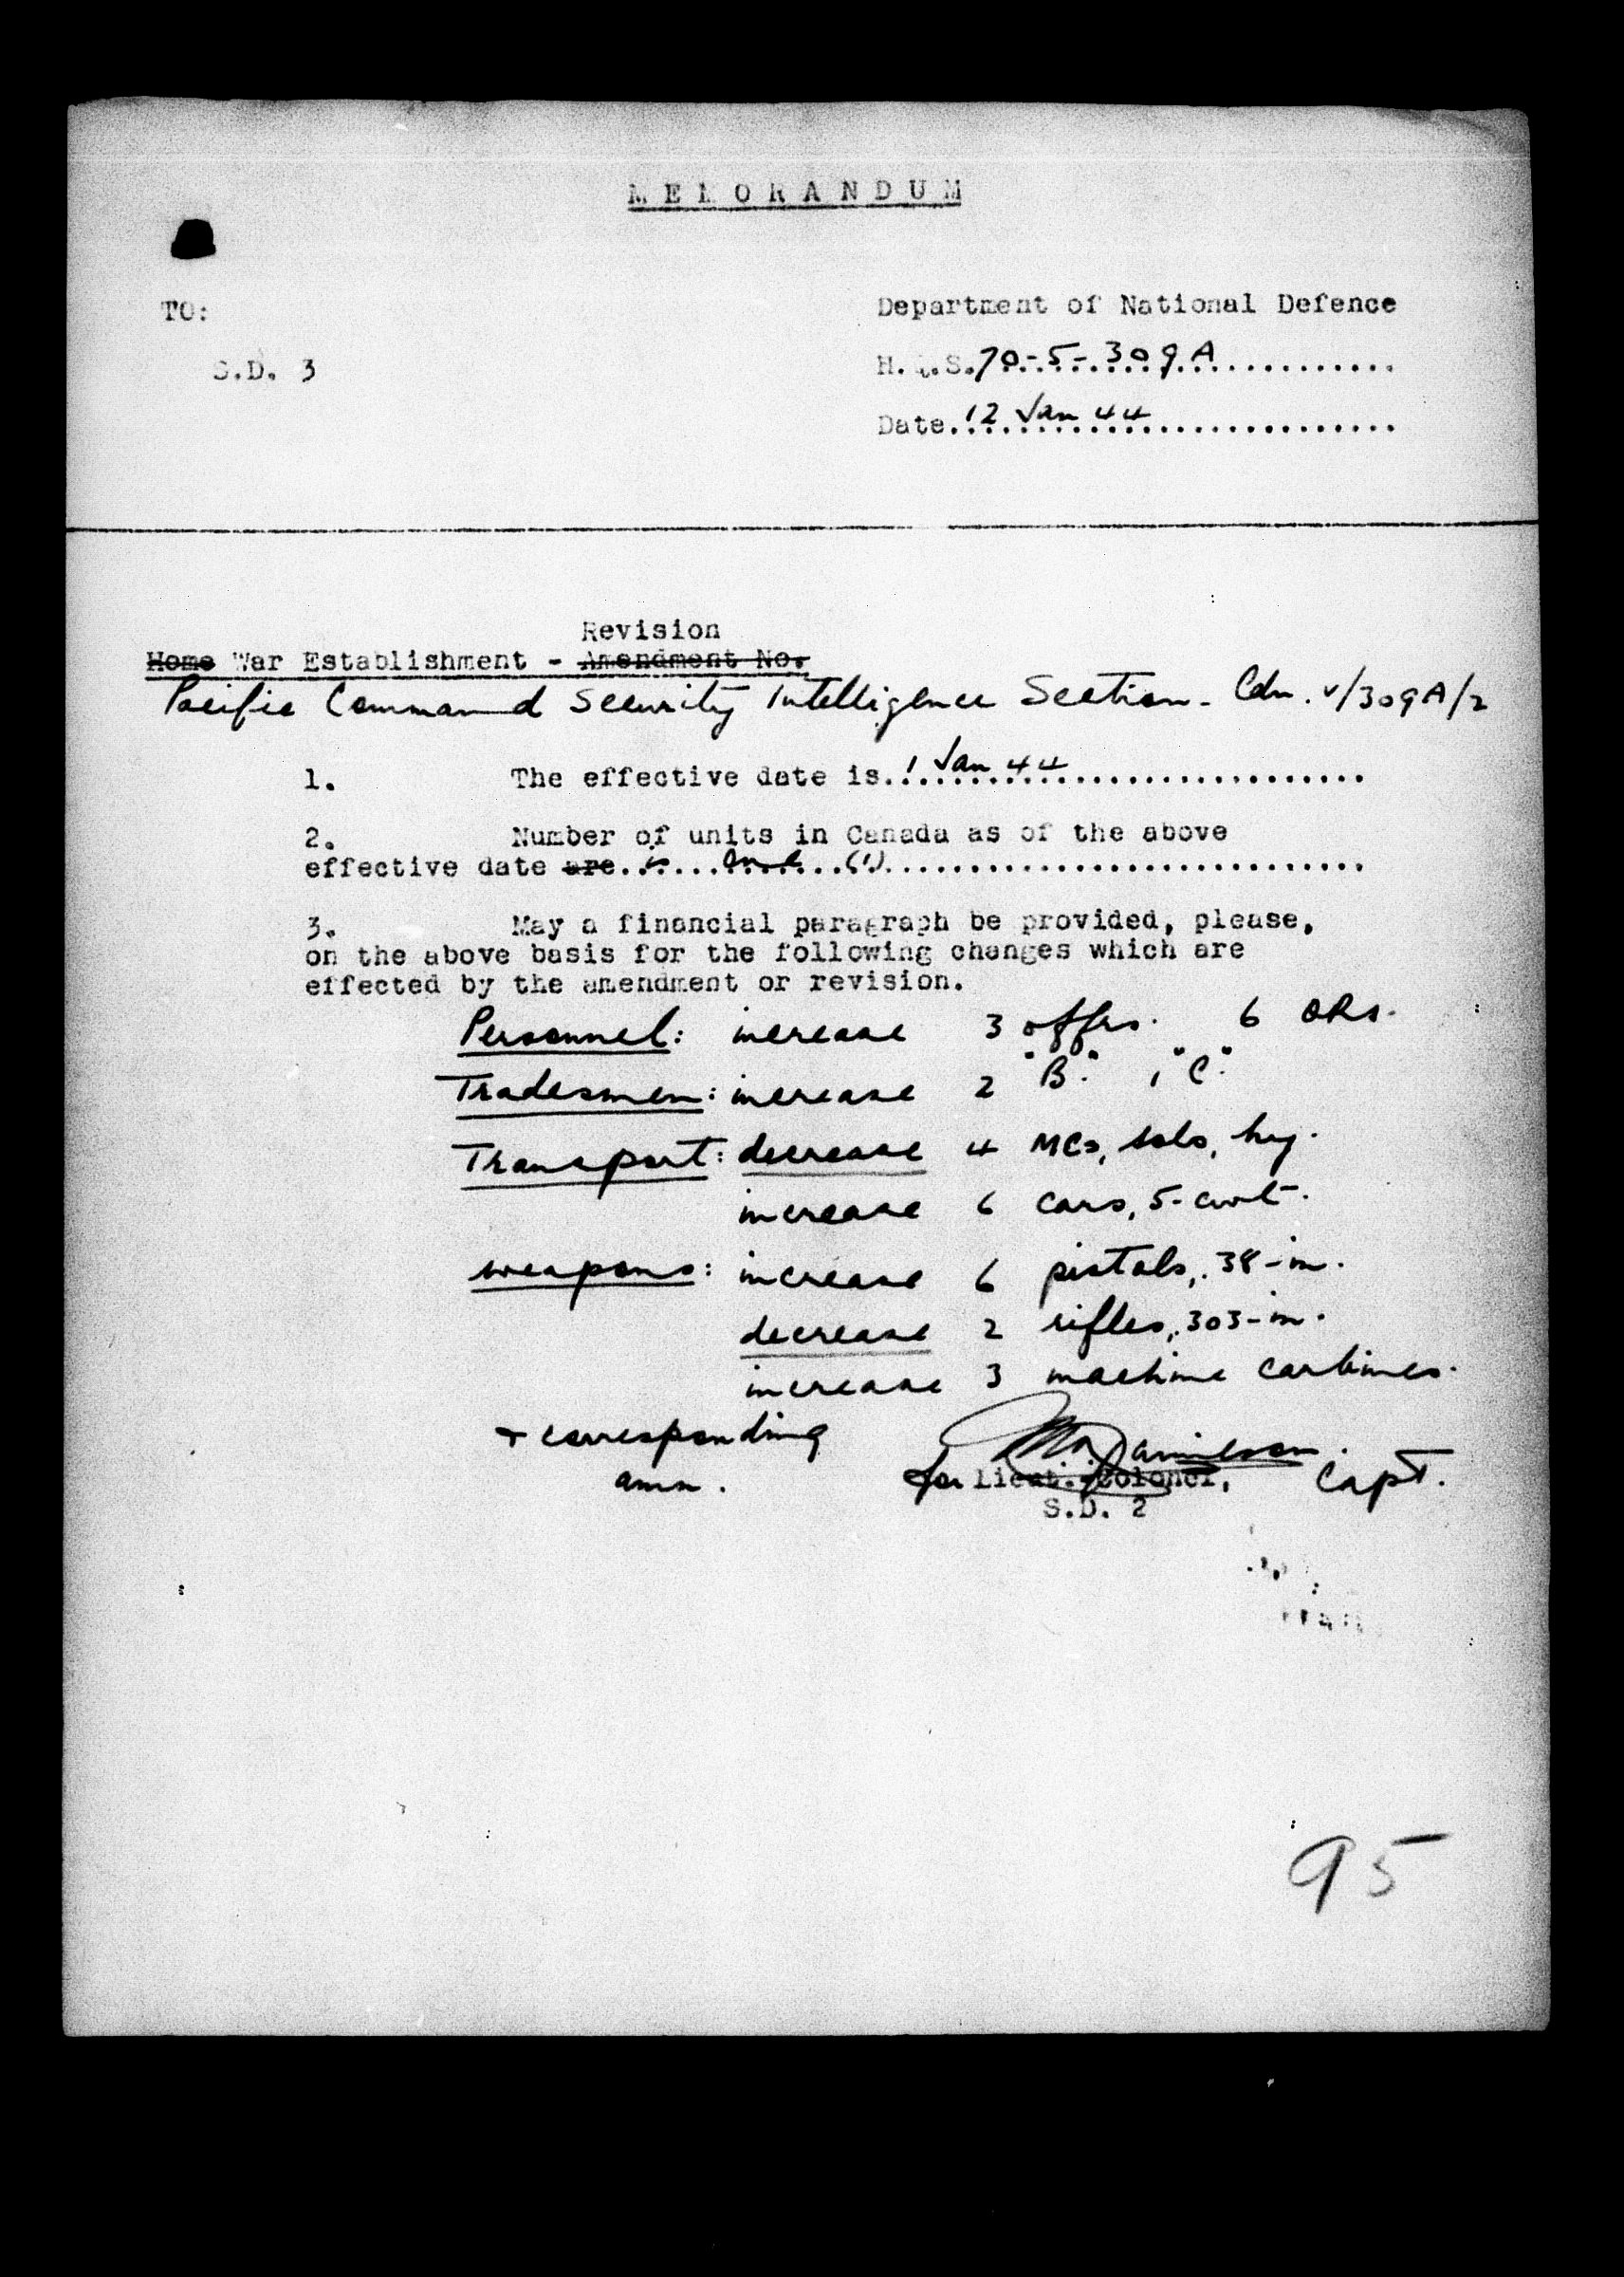 MEMORANDUM
TO:
S.D. 3
Department of National Defence
H.Q.S. 70-5-309A
Date. 12 Jan 44
Revision
Home War Establishment - Amendment No.
Pacific Command Security Intelligence Section - Cdn. V/309A/2
1. The effective date is. 1 Jan 44
2. Number of units in Canada as of the above
effective date are. is One (1)
3. May a financial paragraph be provided, please,
on the above basis for the following changes which are
effected by the amendment or revision.
Personnel: increase 3 offrs. 6 ORs.
Tradesmen: increase 2 "B". 1 "C".
Transport: decrease 4 MCs, solo, hy.
increase 6 cars, 5-cwt.
weapons: increase 6 pistols, .38-in.
decrease 2 rifles, .303-in.
increase 3 machine carbines.
+ corresponding
amn.
Jamieson.
for Lieut.-Colonel, Capt.
S.D. 2
95